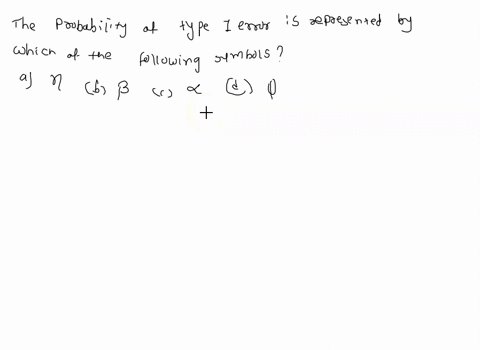 The Probability of type I error is represented by
which of the following symbols?
a) η (b) β (c) α (d) φ